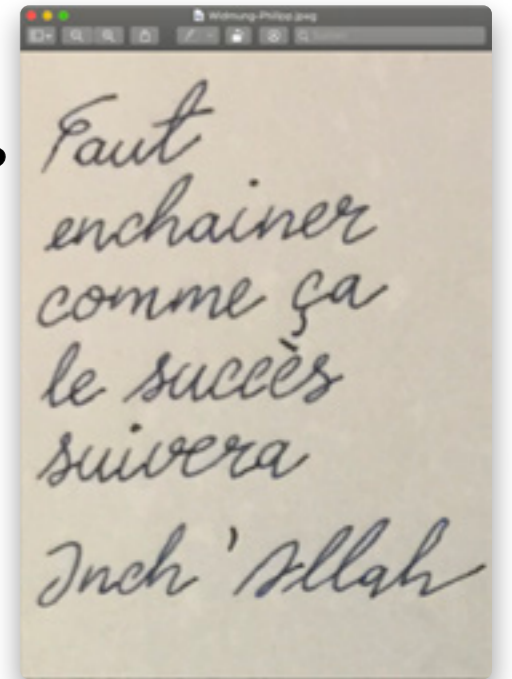 Widmung-Philipp.jpeg
Faut
enchainer
comme ça
le succès
suivera
Inch'Allah